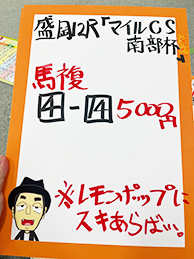 盛岡12R「マイルCS
南部杯」
馬複
4-14 5000円
※レモンポップに
スキあらばぃ。